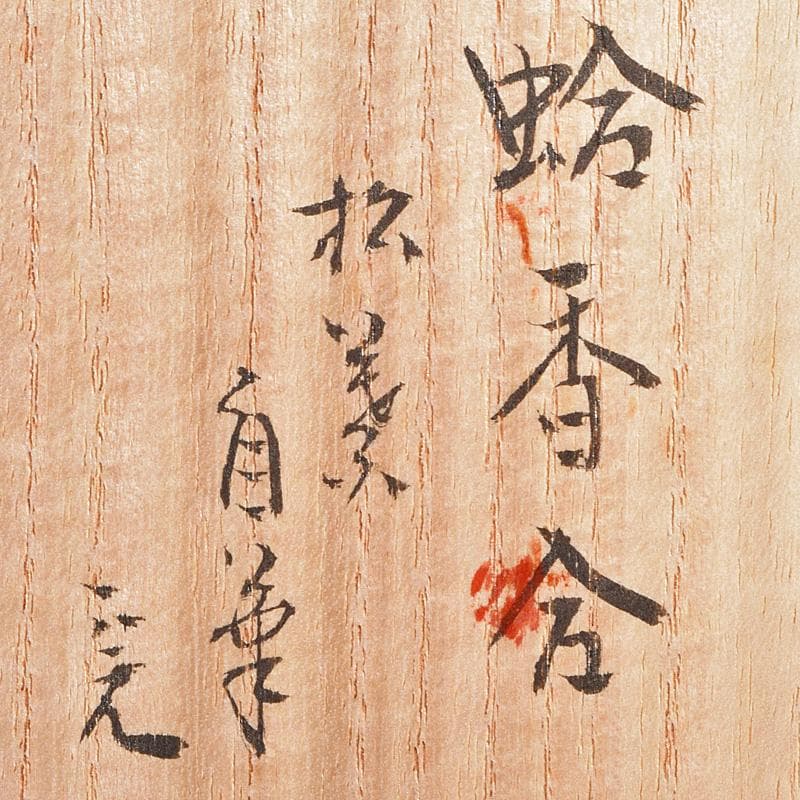 蛤香合
松葉
自筆